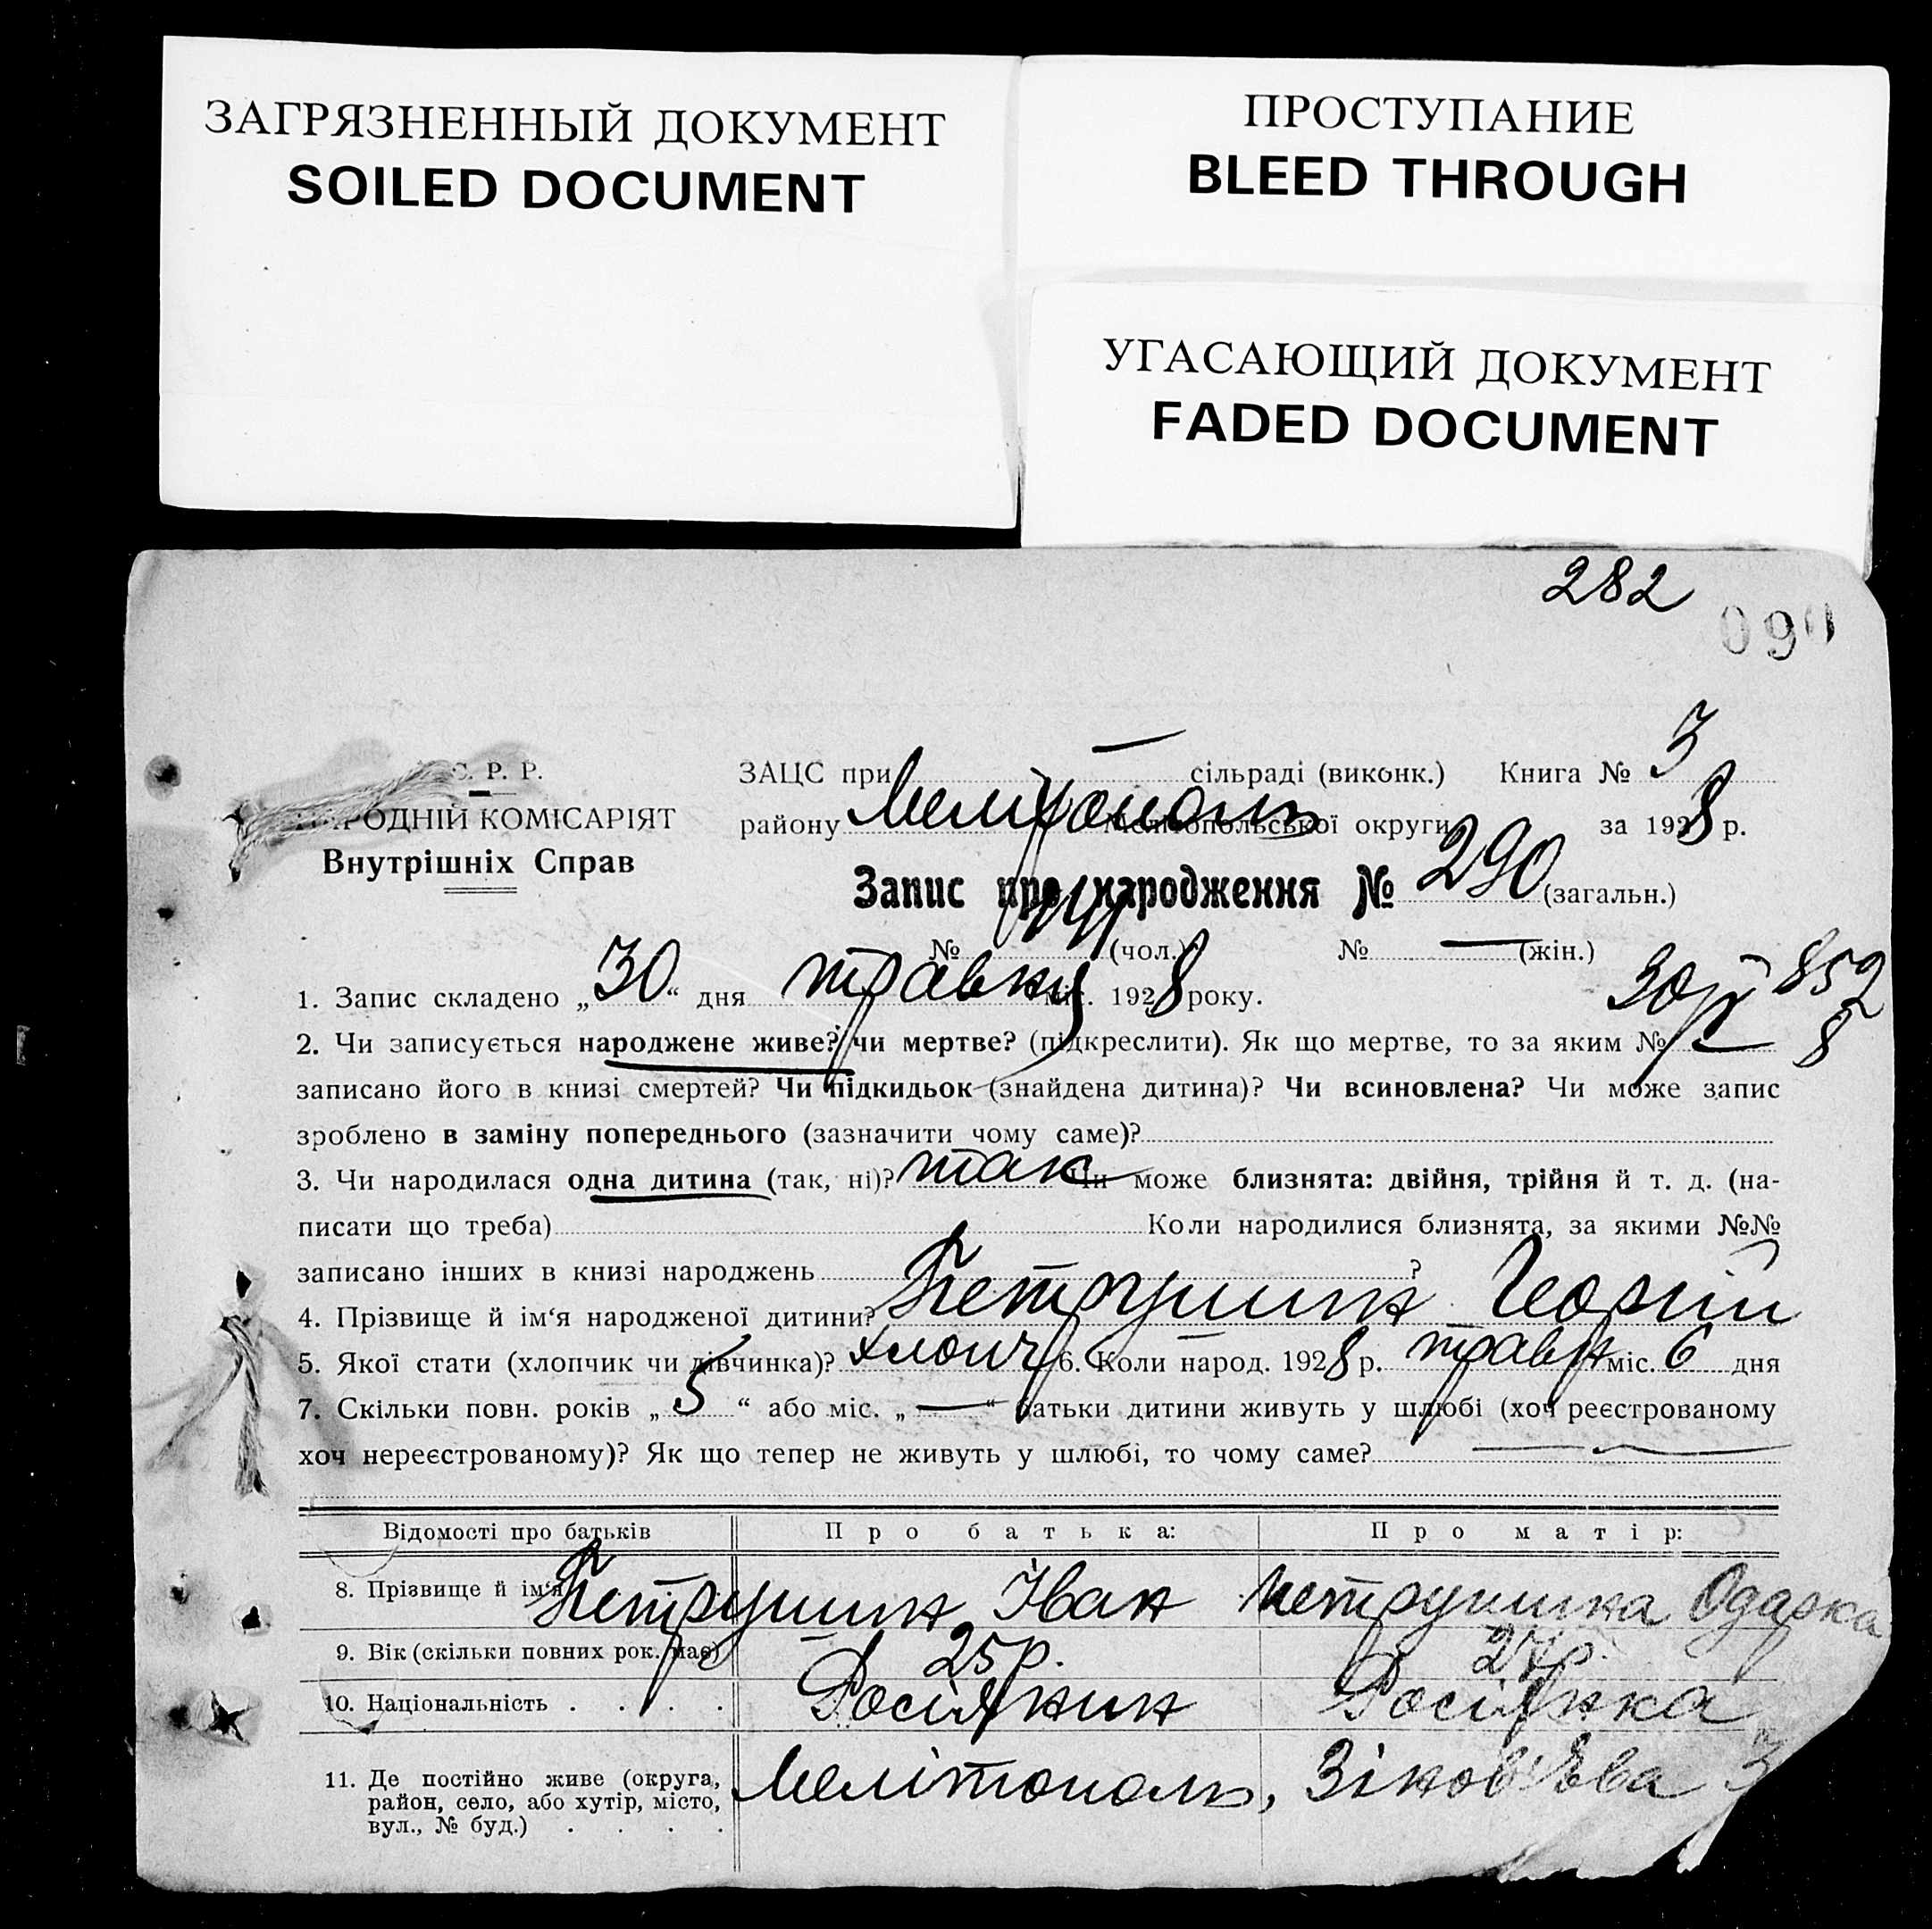 ЗАГРЯЗНЕННЫЙ ДОКУМЕНТ
SOILED DOCUMENT
ПРОСТУПАНИЕ
BLEED THROUGH
УГАСАЮЩИЙ ДОКУМЕНТ
FADED DOCUMENT
282
090
С. Р. Р.
РОДНІЙ КОМІСАРІЯТ
Внутрішніх Справ
ЗАЦС при — сільраді (виконк.) Книга № 3
району Мелітополь Мелітопольської округи за 1928 р.
Запис про народження № 290 (загальн.)
№ (чол.) № — (жін.)
1. Запис складено „30“ дня травня міс. 1928 року.
852
8
2. Чи записується народжене живе? чи мертве? (підкреслити). Як що мертве, то за яким №
записано його в книзі смертей? Чи підкидьок (знайдена дитина)? Чи всиновлена? Чи може запис
зроблено в заміну попереднього (зазначити чому саме)?
3. Чи народилася одна дитина (так, ні)? так Чи може близнята: двійня, трійня й т. д. (на-
писати що треба) Коли народилися близнята, за якими №№
записано інших в книзі народжень ?
4. Прізвище й ім‘я народженої дитини? Петрушин Георгій
5. Якої стати (хлопчик чи дівчинка)? хлопч 6. Коли народ. 1928 р. травня міс. 6 дня
7. Скільки повн. років „5“ або міс. „—“ батьки дитини живуть у шлюбі (хоч реєстрованому
хоч нереєстрованому)? Як що тепер не живуть у шлюбі, то чому саме? —
Відомості про батьків Про батька: Про матір:
8. Прізвище й ім‘я Петрушин Іван Петрушина Одарка
9. Вік (скільки повних рок. має) 25 р. 24 р.
10. Національність . . . . Росіянин Росіянка
11. Де постійно живе (округа,
район, село, або хутір, місто,
вул., № буд.) . . . .
Мелітополь, Зінов'єва 3